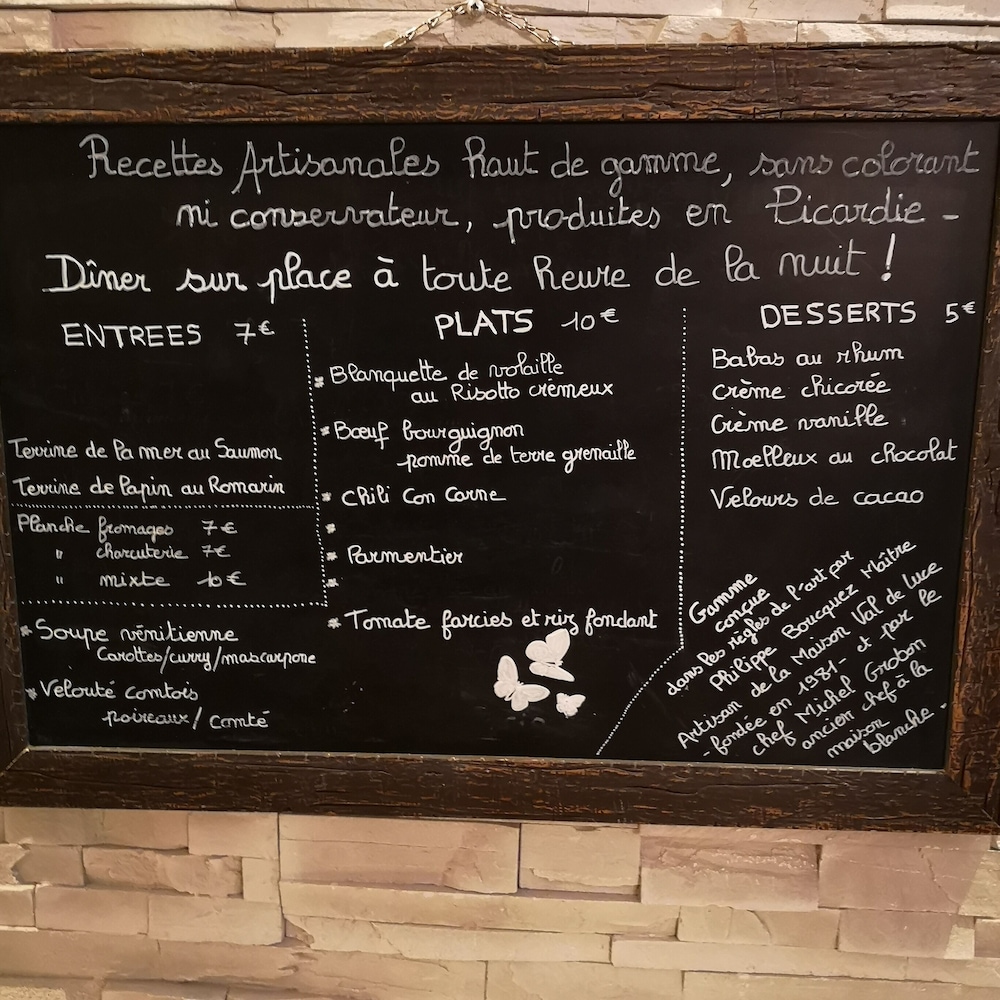 Recettes Artisanales haut de gamme, sans colorant
ni conservateur, produites en Picardie -
Dîner sur place à toute heure de la nuit !
ENTREES 7€
Terrine de la mer au Saumon
Terrine de lapin au Romarin
Planche fromages 7€
" charcuterie 7€
" mixte 10€
* Soupe vénitienne
Carottes/curry/mascarpone
* Velouté comtois
poireaux/Comté
PLATS 10€
* Blanquette de volaille
au Risotto crémeux
* Bœuf bourguignon
pomme de terre grenaille
* Chili Con Carne
*
* Parmentier
*
* Tomate farcies et riz fondant
DESSERTS 5€
Babas au rhum
Crème chicorée
Crème vanille
Moelleux au chocolat
Velours de cacao
Gamme
conçue
dans les règles de l'art par
Philippe Boucquez Maître
Artisan de la Maison Val de luce
- fondée en 1981 - et par le
chef Michel Grobon
ancien chef à la
maison
blanche -